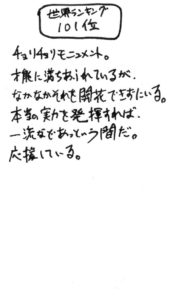 世界ランキング
101位
チョリチョリモニュメント。
才能に満ちあふれているが、
なかなかそれを開花できずにいる。
本当の実力を発揮すれば、
一流なであっという間だ。
応援している。